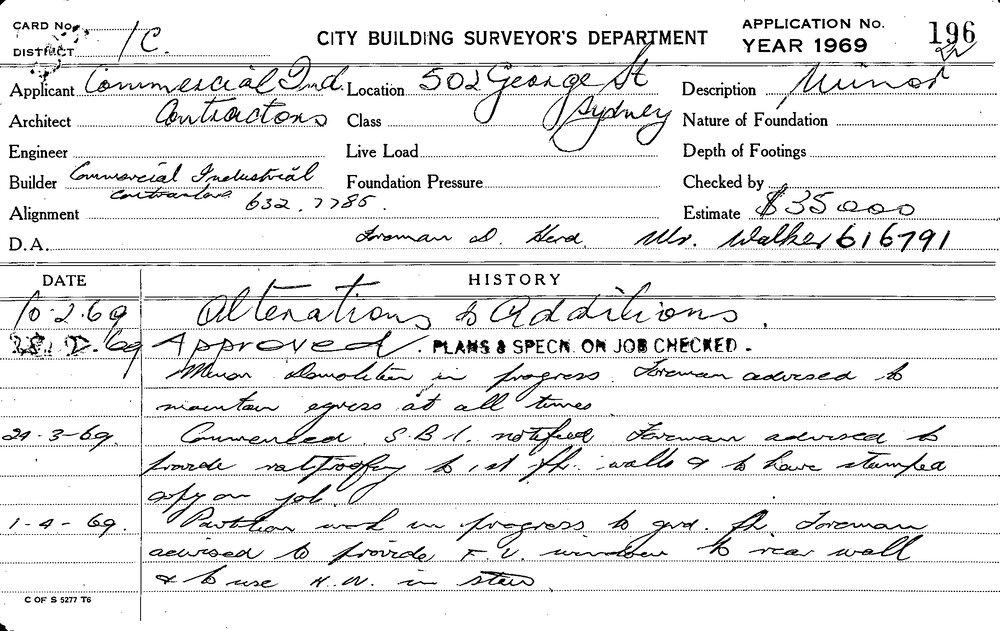 CARD No.
DISTRICT 1C.
CITY BUILDING SURVEYOR'S DEPARTMENT
APPLICATION No. 196
YEAR 1969 22
Applicant Commercial Ind. Location 502 George St Description Minor
Architect Contractors Class Sydney Nature of Foundation
Engineer Live Load Depth of Footings
Builder Commercial Industrial Foundation Pressure Checked by
contractors 632.7785.
Alignment Estimate $35000
D.A. Foreman D. Herd. Mr. Walker 616791
DATE HISTORY
10.2.69 Alterations & Additions.
69 Approved. PLANS & SPECN. ON JOB CHECKED.
Minor Demolition in progress. Foreman advised to
maintain egress at all times
24-3-69. Commenced. S.B.I. notified Foreman advised to
provide ratproofing to 1st flr. walls & to have stamped
copy on job.
1-4-69. Partition work in progress to grd. flr Foreman
advised to provide F.V. window to rear wall
& to use H.W. in stairs
C OF S 5277 T6